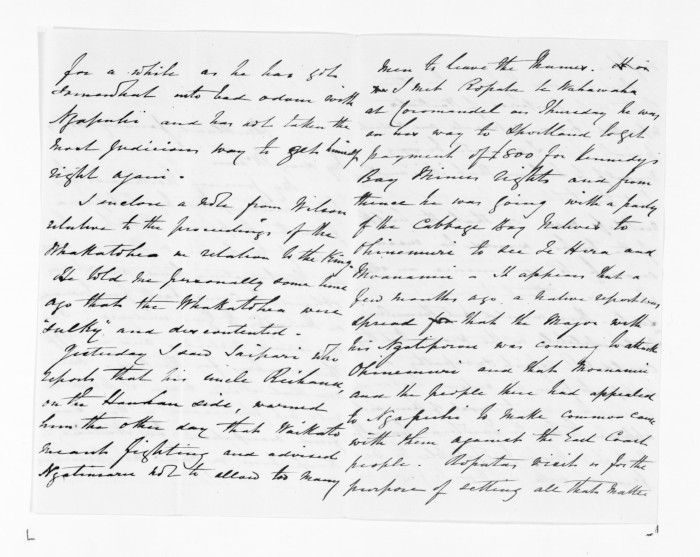 for a while as he has got
somewhat into bad odour with
Ngapuhi and has not taken the
most judicious way to get himself
right again.
I enclose a note from Wilson
relative to the proceedings of the
Whakatohea in relation to the King.
He told me personally some time
ago that the Whakatohea were
"sulky" and discontented.
Yesterday I saw Taipari who
reports that his uncle Riihana,
on the Hauhau side, warned
him the other day that Waikato
meant fighting and advised
Ngatimaru not to allow too many
men to leave the Thames.
I met Ropata te Wahawaha
at Coromandel on Thursday he was
on his way to Shortland to get
payment of £800 for Kennedy's
Bay Miners rights and from
thence he was going with a party
of the Cabbage Bay Natives to
Ohinemuri to see Te Hira and
Moananui - It appears that a
few months ago, a native report was
spread that the Major with
his Ngatiporou was coming to attack
Ohinemuri and that Moananui
and the people there had appealed
to Ngapuhi to make common cause
with them against the East Coast
people. Ropatas visit is for the
purpose of setting all that matter